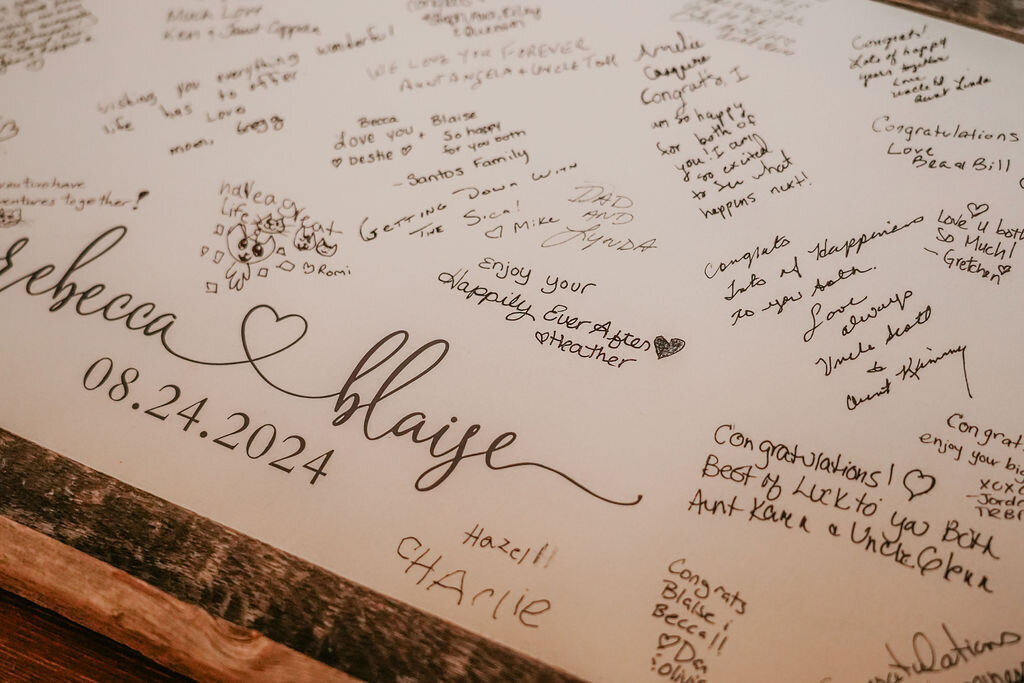 Much Love
Ken & Janet
wishing you everything wonderful
life has to offer.
Love
mom, Gregg
WE LOVE YOU FOREVER
AUNT ANGELA + UNCLE TOM
Becca + Blaise
Love you So happy
♡ bestie ♡ for you both
- Santos Family
Amelie
Congrats, I
am so happy
for both of
you! I am
so excited
to see what
happens next!
Congrats!
Lots of happy
years together
Love
uncle Ed
Aunt Linda
Congratulations
Love
Bea & Bill
together!
have a great
life
♡ Romi
GETTING DOWN WITH
THE SICA!
♡ Mike
DAD
AND
LYNDA
enjoy your
Happily Ever After
♡Heather
Congrats
Lots of Happiness
to you both.
Love
always
Uncle Scott
&
Aunt Kimmy
Love u both
So Much!
- Gretchen
rebecca ♡ blaise
08.24.2024
Congratulations! ♡
Best of Luck to you Both
Aunt Karen & Uncle Glenn
enjoy your
xoxo
Hazel!!
CHArlie
Congrats
Blaise &
Becca!!